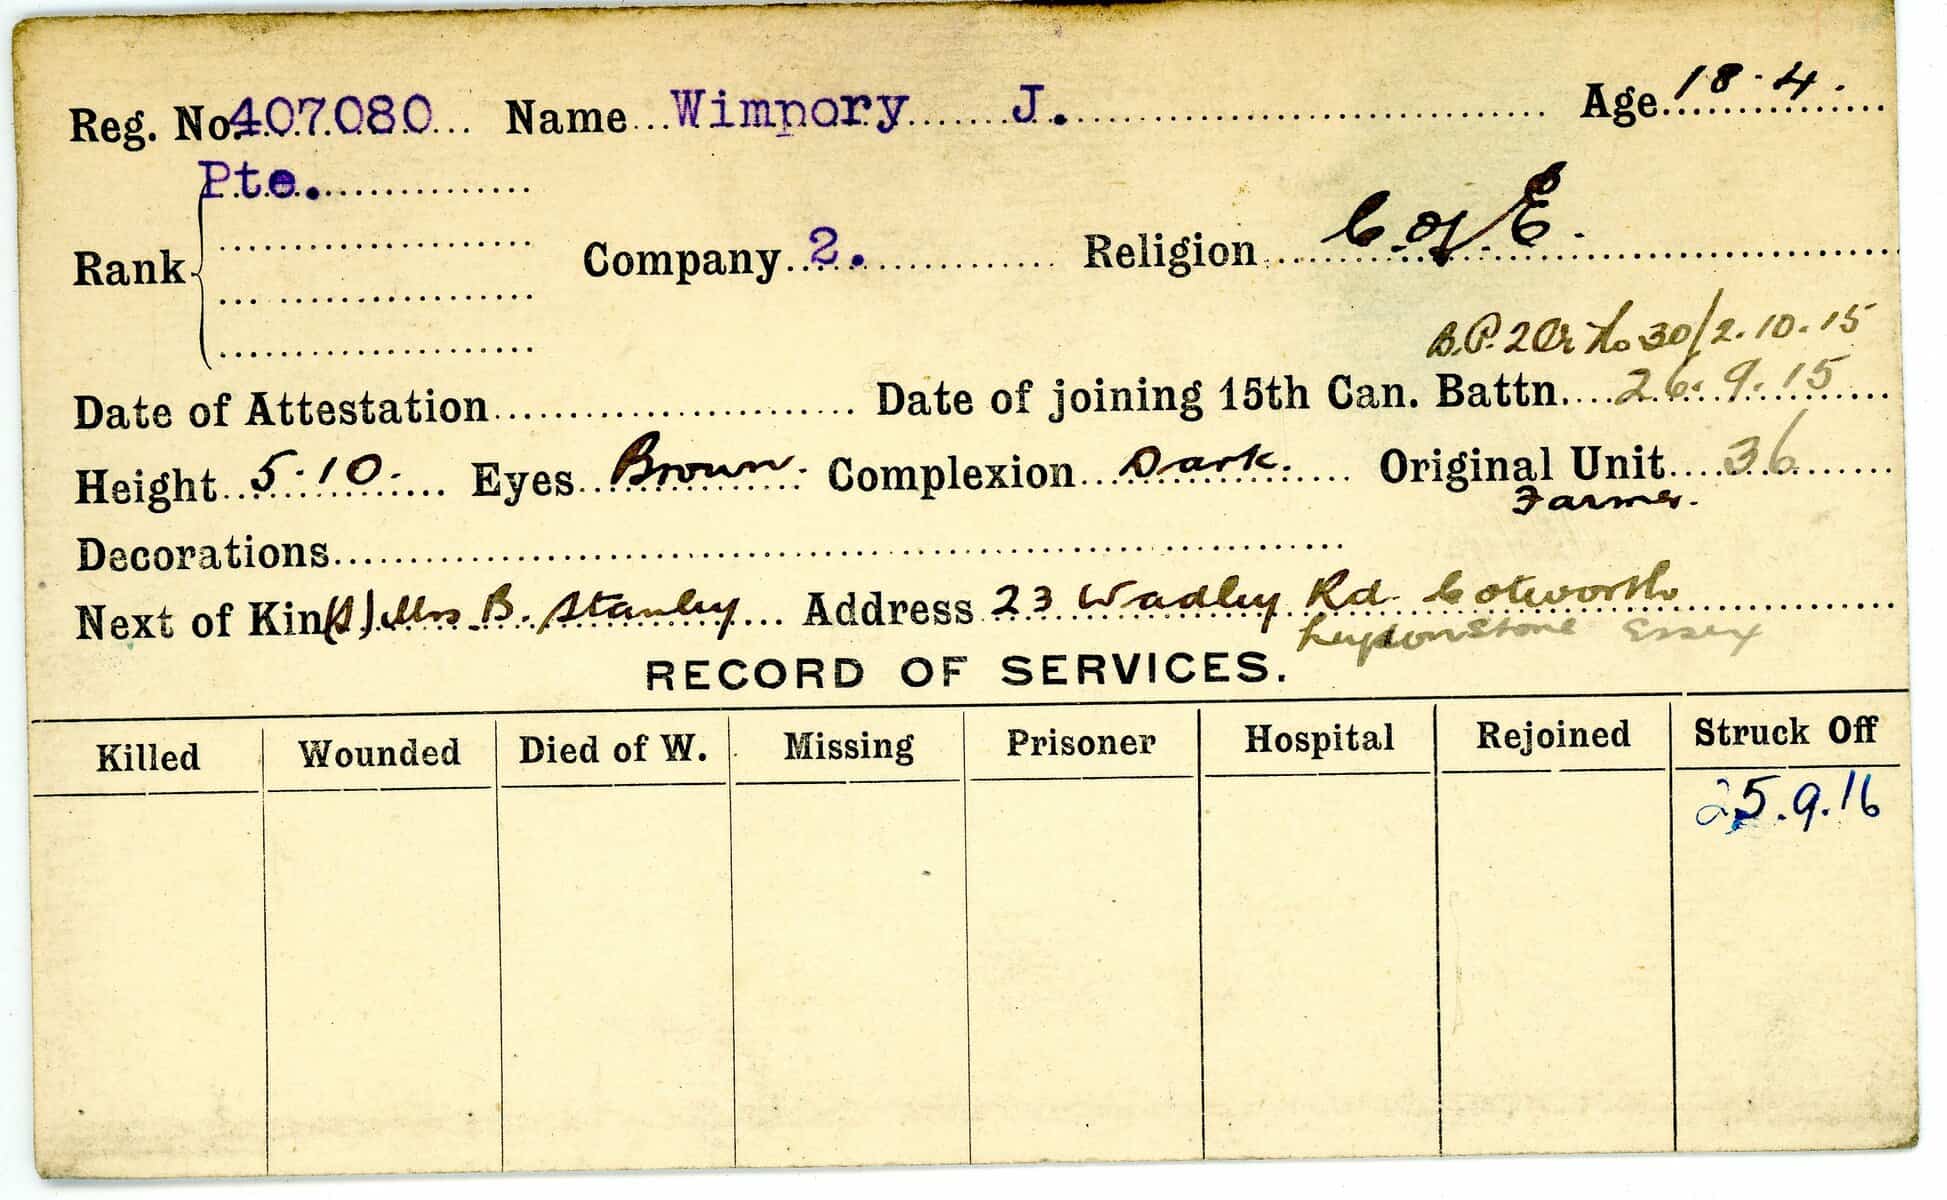 Reg. No. 407080 Name Wimpory J. Age 18-4.
Pte.
Rank Company 2. Religion C. of E.
B.P.2 Or No 30/2.10.15
Date of Attestation Date of joining 15th Can. Battn. 26.9.15
Height 5.10. Eyes Brown. Complexion Dark. Original Unit 36
Farmer.
Decorations
Next of Kin (S) Mrs B. Stanley Address 23 Wadley Rd. Cotworth
Leytonstone Essex
RECORD OF SERVICES.
Killed Wounded Died of W. Missing Prisoner Hospital Rejoined Struck Off
25.9.16